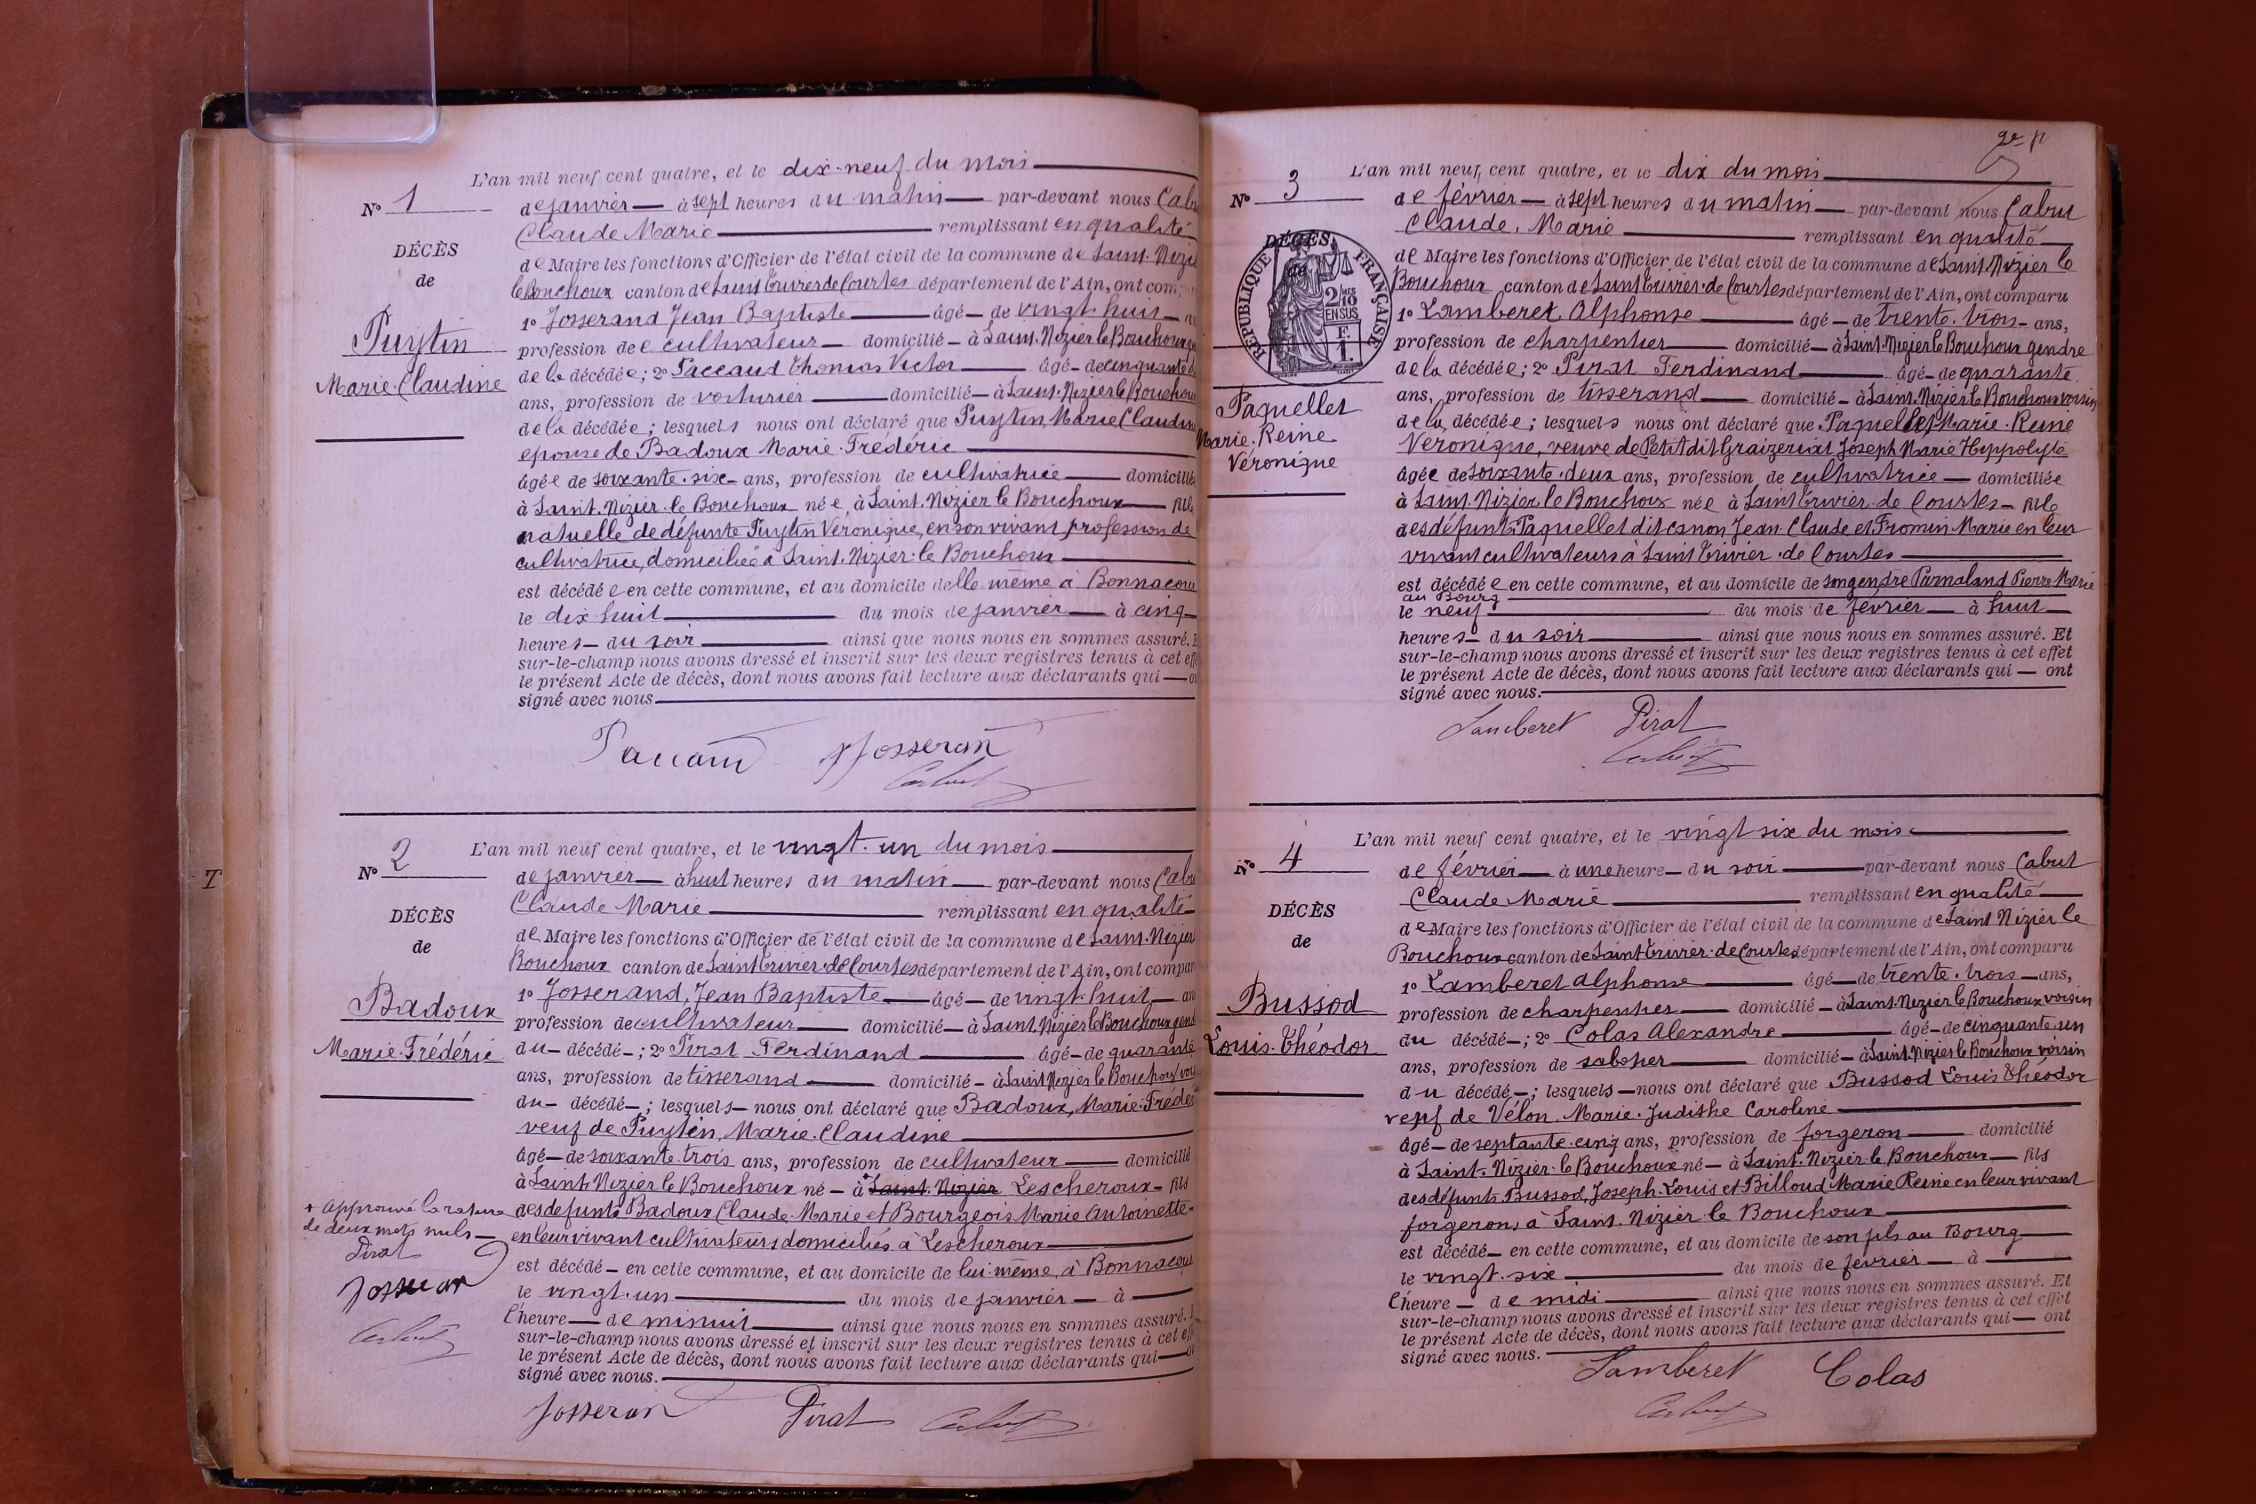 L'an mil neuf cent quatre, et le dix-neuf du mois
No 1
de janvier à sept heures du matin par-devant nous Cabu
Claude Marie remplissant en qualité
de Maire les fonctions d'Officier de l'état civil de la commune de Saint-Nizie
DÉCÈS
de
le Bouchoux canton de Saint Trivier de Courtes département de l'Ain, ont com
1o Josserand Jean Baptiste âgé de vingt-huit
Puytin
Marie-Claudine
profession de cultivateur domicilié à Saint-Nizier le Bouchoux
de la décédée; 2o Paccaud Thomas Victor âgé de cinquante
ans, profession de voiturier domicilié à Saint-Nizier le Bouchou
de la décédée; lesquels nous ont déclaré que Puytin, Marie Claudin
épouse de Badoux Marie-Frédéric
âgée de soixante-six ans, profession de cultivatrice domicilié
à Saint-Nizier-le Bouchoux née à Saint-Nizier le Bouchoux fille
natuelle de défunte Puytin Véronique, en son vivant, profession de
cultivatrice, domiciliée à Saint-Nizier-le Bouchoux
est décédée en cette commune, et au domicile d'elle même à Bonnacou
le dix huit du mois de janvier à cinq
heures du soir ainsi que nous nous en sommes assuré. E
sur-le-champ nous avons dressé et inscrit sur les deux registres tenus à cet eff
le présent Acte de décès, dont nous avons fait lecture aux déclarants qui o
signé avec nous.
Paccaud Josseran
Cabut
L'an mil neuf cent quatre, et le vingt-un du mois
No 2
de janvier à huit heures du matin par-devant nous Cabu
Claude Marie remplissant en qualité
DÉCÈS
de
de Maire les fonctions d'Officier de l'état civil de la commune de Saint-Nizier
Bouchoux canton de Saint Trivier-de Courtes département de l'Ain, ont compar
Badoux
Marie-Frédéric
1o Josserand, Jean Baptiste âgé de vingt-huit an
profession de cultivateur domicilié à Saint-Nizier le Bouchoux gend
du décédé; 2o Pirat Ferdinand âgé de quarante
ans, profession de tisserand domicilié à Saint Nizier le Bouchoux voi
du décédé; lesquels nous ont déclaré que Badoux, Marie-Frédér
veuf de Puytin, Marie-Claudine
âgé de soixante trois ans, profession de cultivateur domicilié
à Saint-Nizier le Bouchoux né à + Saint-Nizier Lescheroux fils
des défunts Badoux Claude-Marie et Bourgeois Marie Antoinette
en leur vivant cultivateurs domiciliés à Lescheroux
+ Approuvé la rature
de deux mots nuls
Pirat
Josseran
Cabut
est décédé en cette commune, et au domicile de lui-même, à Bonnacou
le vingt-un du mois de janvier à
l'heure de minuit ainsi que nous nous en sommes assuré. E
sur-le-champ nous avons dressé et inscrit sur les deux registres tenus à cet eff
le présent Acte de décès, dont nous avons fait lecture aux déclarants qui o
signé avec nous.
Josseran Pirat Cabut
L'an mil neuf cent quatre, et le dix du mois
No 3
de février à sept heures du matin par-devant nous Cabut
Claude, Marie remplissant en qualité
DÉCÈS
de
RÉPUBLIQUE FRANÇAISE
2/10 EN SUS
F. 1.
de Maire les fonctions d'Officier de l'état civil de la commune de Saint-Nizier le
Bouchoux canton de Saint Trivier-de Courtes département de l'Ain, ont comparu
1o Lamberet Alphonse âgé de trente-trois ans,
profession de charpentier domicilié à Saint-Nizier le Bouchoux gendre
de la décédée; 2o Pirat Ferdinand âgé de quarante
Paquellet
Marie-Reine
Véronique
ans, profession de tisserand domicilié à Saint-Nizier le Bouchoux voisin
de la décédée; lesquels nous ont déclaré que Paquellet, Marie-Reine
Véronique, veuve de Petit dit Graizeriat Joseph Marie Hippolyte
âgée de soixante-deux ans, profession de cultivatrice domiciliée
à Saint-Nizier le Bouchoux née à Saint Trivier-de Courtes fille
des défunts Paquellet dit canon Jean Claude et Fromin Marie en leur
vivant cultivateurs à Saint Trivier-de Courtes
est décédée en cette commune, et au domicile de son gendre Parnaland Pierre Marie
au Bourg
le neuf du mois de février à huit
heures du soir ainsi que nous nous en sommes assuré. Et
sur-le-champ nous avons dressé et inscrit sur les deux registres tenus à cet effet
le présent Acte de décès, dont nous avons fait lecture aux déclarants qui ont
signé avec nous.
Lamberet Pirat
Cabut
L'an mil neuf cent quatre, et le vingt six du mois
No 4
de février à une heure du soir par-devant nous Cabut
Claude Marie remplissant en qualité
DÉCÈS
de
de Maire les fonctions d'Officier de l'état civil de la commune de Saint Nizier le
Bouchoux canton de Saint Trivier-de Courtes département de l'Ain, ont comparu
1o Lamberet Alphonse âgé de trente-trois ans,
Bussod
Louis-Théodor
profession de charpentier domicilié à Saint-Nizier le Bouchoux voisin
du décédé; 2o Colas Alexandre âgé de cinquante-un
ans, profession de sabotier domicilié à Saint-Nizier le Bouchoux voisin
du décédé; lesquels nous ont déclaré que Bussod Louis Théodor
veuf de Vélon Marie-Judithe Caroline
âgé de septante-cinq ans, profession de forgeron domicilié
à Saint-Nizier-le Bouchoux né à Saint-Nizier le Bouchoux fils
des défunts Bussod, Joseph-Louis et Billoud Marie Reine en leur vivant
forgerons à Saint-Nizier le Bouchoux
est décédé en cette commune, et au domicile de son fils au Bourg
le vingt-six du mois de février à
l'heure de midi ainsi que nous nous en sommes assuré. Et
sur-le-champ nous avons dressé et inscrit sur les deux registres tenus à cet effet
le présent Acte de décès, dont nous avons fait lecture aux déclarants qui ont
signé avec nous.
Lamberet Colas
Cabut
T